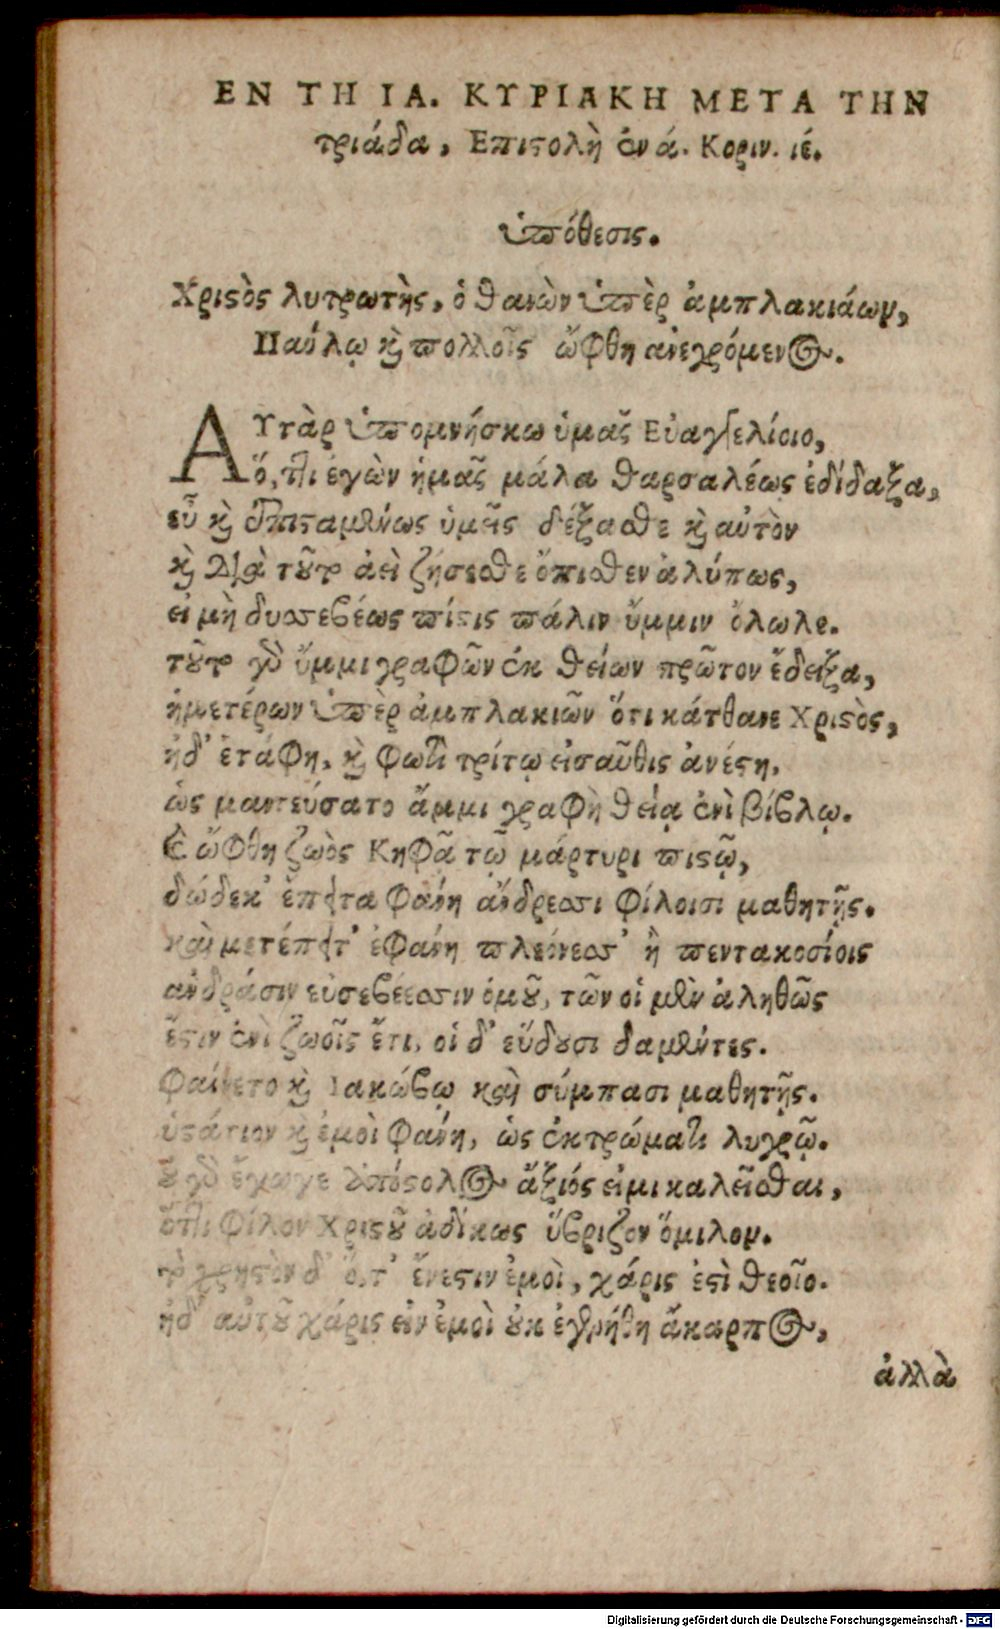 ΕΝ ΤΗ ΙΑ. ΚΥΡΙΑΚΗ ΜΕΤΑ ΤΗΝ
τριάδα, Επιϛολὴ ἐν ά. Κοριν. ιέ.
ὑπόθεσις.
Χριϛὸς λυτρωτὴς, ὁ θανὼν ὑπὲρ ἀμπλακιάων,
Παύλῳ κὶ πολλοῖς ὤφθη ἀνεγρόμενος.
ΑΥτὰρ ὑπομνήσκω ὑμᾶς Εὐαγγελίοιο,
ὅ, τι ἐγὼν ἡμᾶς μάλα θαρσαλέως ἐδίδαξα,
εὖ κὶ ἐπιϛαμένως ὑμεῖς δέξασθε κὶ αὐτὸν
κὶ διὰ τοῦτο ἀεὶ ζήσεσθε ὄπισθεν ἀλύπως,
εἰ μὴ δυσσεβέως πίϛις πάλιν ὔμμιν ὄλωλε.
τοῦτο γὰρ ὔμμι γραφῶν ἐκ θείων πρῶτον ἔδειξα,
ἡμετέρων ὑπὲρ ἀμπλακιῶν ὅτι κάτθανε Χριϛὸς,
ἠδ' ἐτάφη, κὶ φωτὶ τρίτῳ εἰσαῦθις ἀνέϛη,
ὡς μαντεύσατο ἄμμι γραφὴ θείᾳ ἐνὶ βίβλῳ.
Καὶ ὤφθη ζωὸς Κηφᾷ τῷ μάρτυρι πιϛῷ,
δώδεκ' ἔπειτα φάνη ἄνδρεσσι φίλοισι μαθητῇς.
καὶ μετέπειτ' ἐφάνη πλεόνεσσ' ἢ πεντακοσίοις
ἀνδράσιν εὐσεβέεσσιν ὁμοῦ, τῶν οἱ μὲν ἀληθῶς
ἔϛιν ἐνὶ ζωοῖς ἔτι, οἱ δ' εὕδουσι δαμέντες.
Φαίνετο κὶ Ἰακώβῳ καὶ σύμπασι μαθητῇς.
ὑϛάτιον κὶ ἐμοὶ φάνη, ὡς ἐκτρώματι λυγρῷ.
οὐ γὰρ ἔγωγε ἀπόϛολος ἄξιός εἰμι καλεῖσθαι,
ὅτι φίλον Χριϛοῦ ἀδίκως ὕβριζον ὅμιλον.
τὸ χρηϛὸν δ' ὅ, τ' ἔνεϛιν ἐμοὶ, χάρις ἐϛὶ θεοῖο.
ἠδ' αὐτοῦ χάρις εἰν ἐμοὶ οὐκ ἐγενήθη ἄκαρπος,
ἀλλὰ
Digitalisierung gefördert durch die Deutsche Forschungsgemeinschaft - DFG